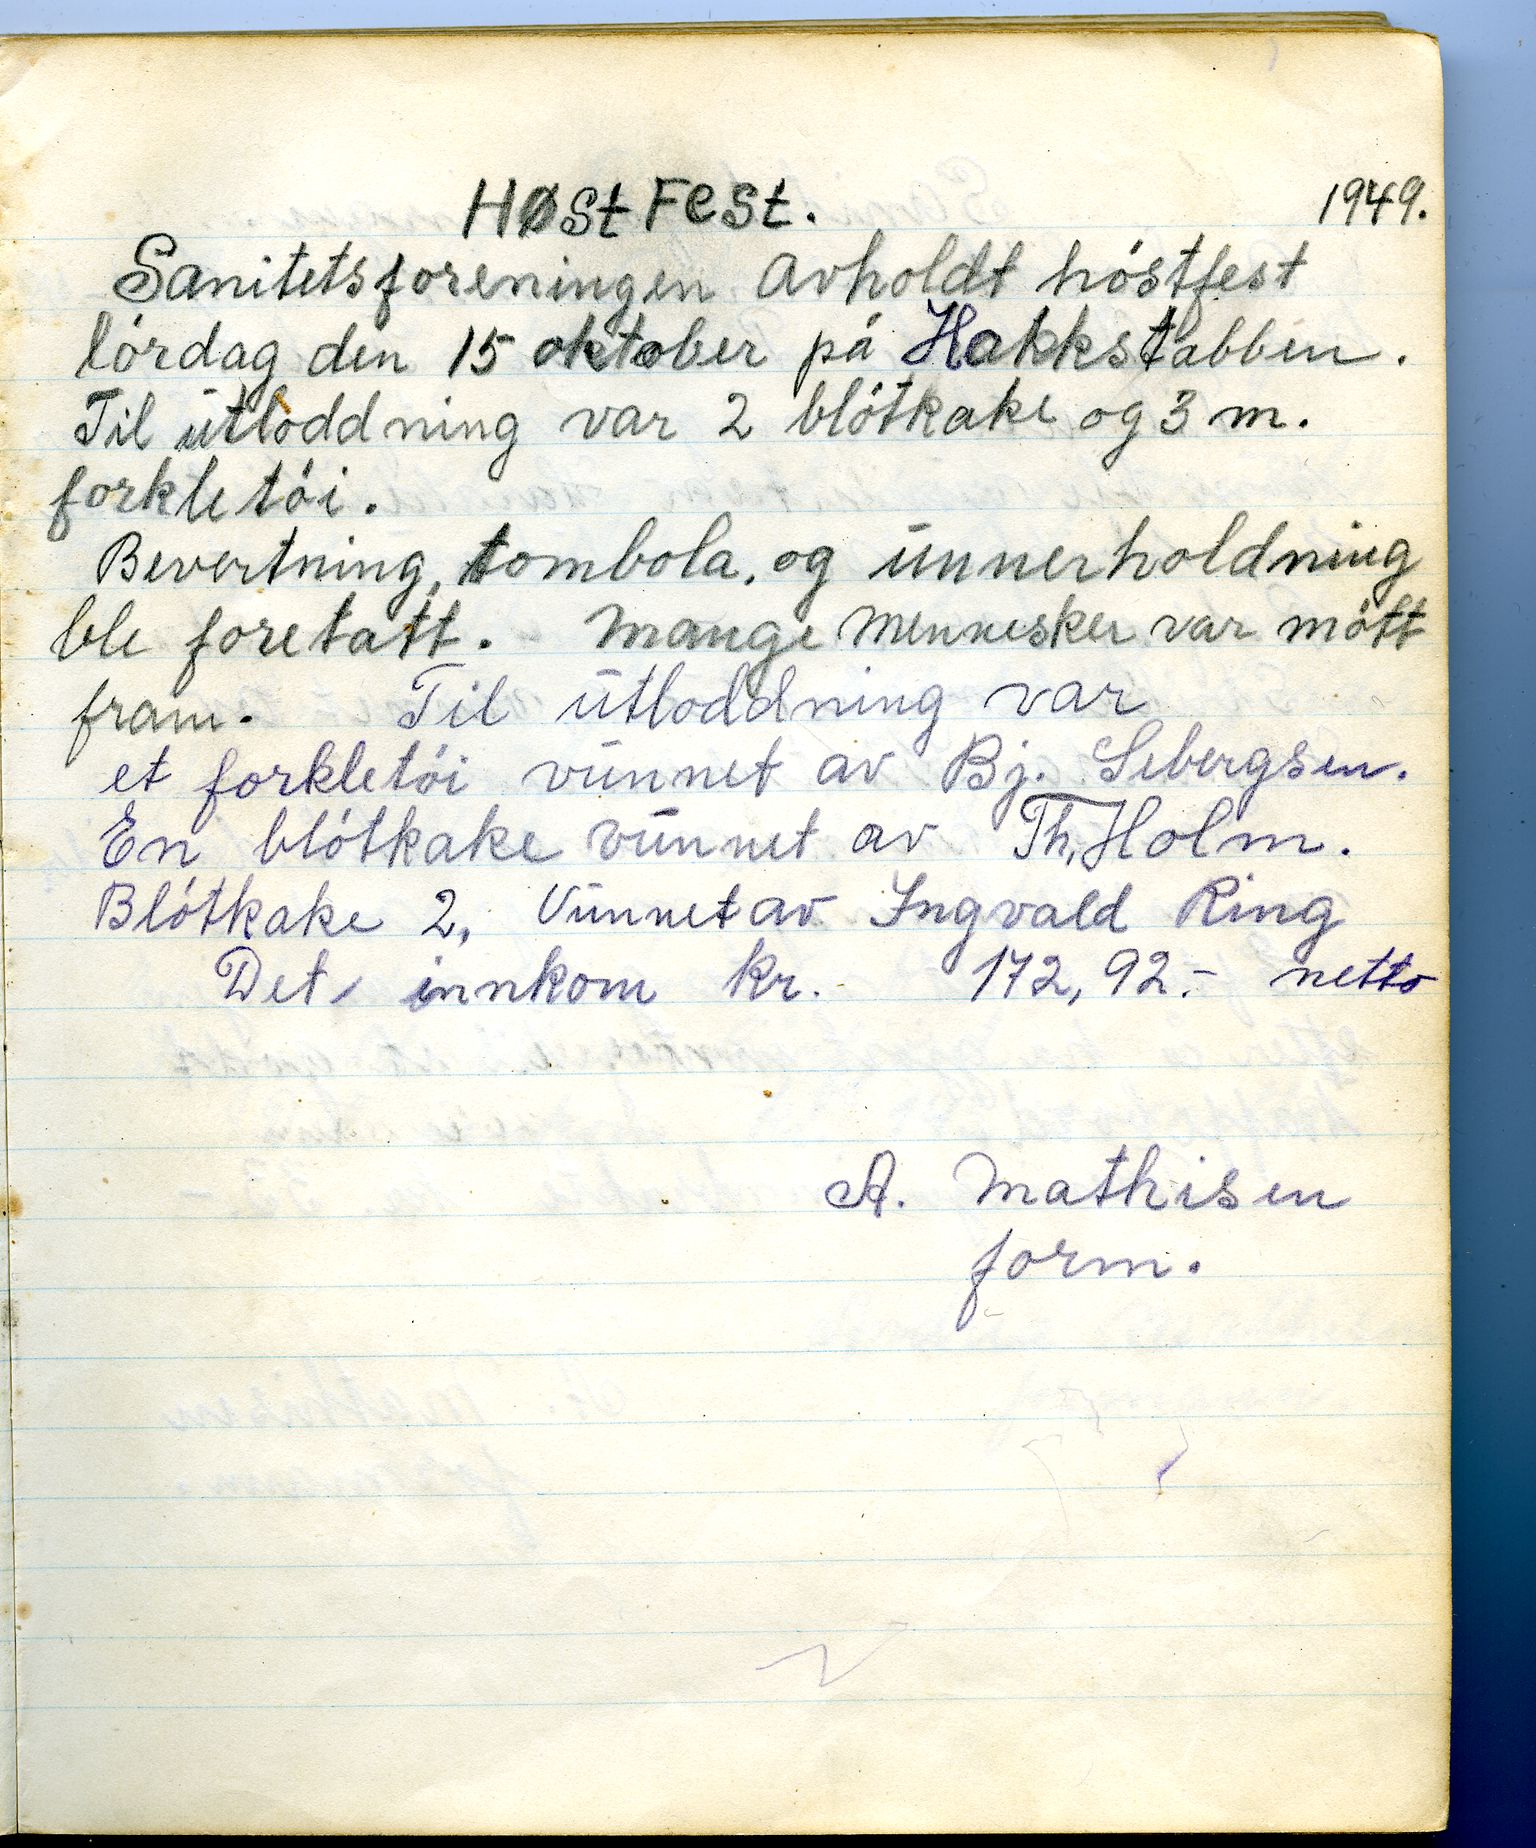 HØSt FeSt. 1949.
Sanitetsforeningen Avholdt höstfest
lördag den 15 oktober på Hakkstabben.
Til ūtloddning var 2 blötkake og 3 m.
forkletöi.
Bevertning, tombola, og ūnnerholdning
ble foretatt. - Mange Mennesker var mött
fram. Til ūtloddning var
et forkletöi vūnnet av Bj. Sebergsen.
En blötkake vūnnet av Th. Holm.
Blötkake 2, Vūnnet av Ingvald Ring
Det innkom kr. 172,92.- netto
A. Mathisen
form.